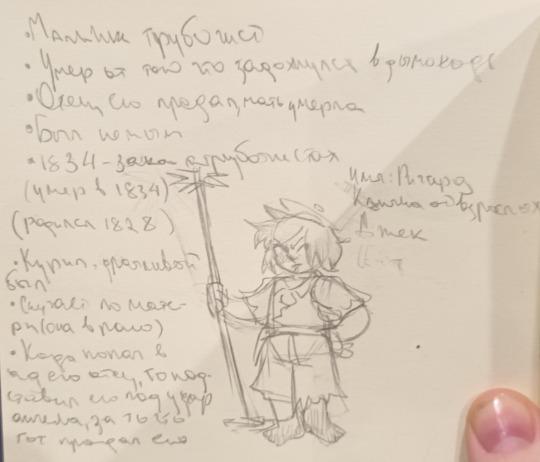 •Мальчик трубочист
•Умер от того что задохнулся в дымоходе
•Отец его продал, мать умерла
•Был немым
•1834-закон о трубочистах
(умер в 1834)
(родился 1828)
•Курил, драчливой
был
•Скучает по мате-
ри(она в раю)
•Когда попал в
ад его отец, то под-
ставил его под удар
ангела, за то что
тот продал его
имя: Ричард
Кличка от взрослых